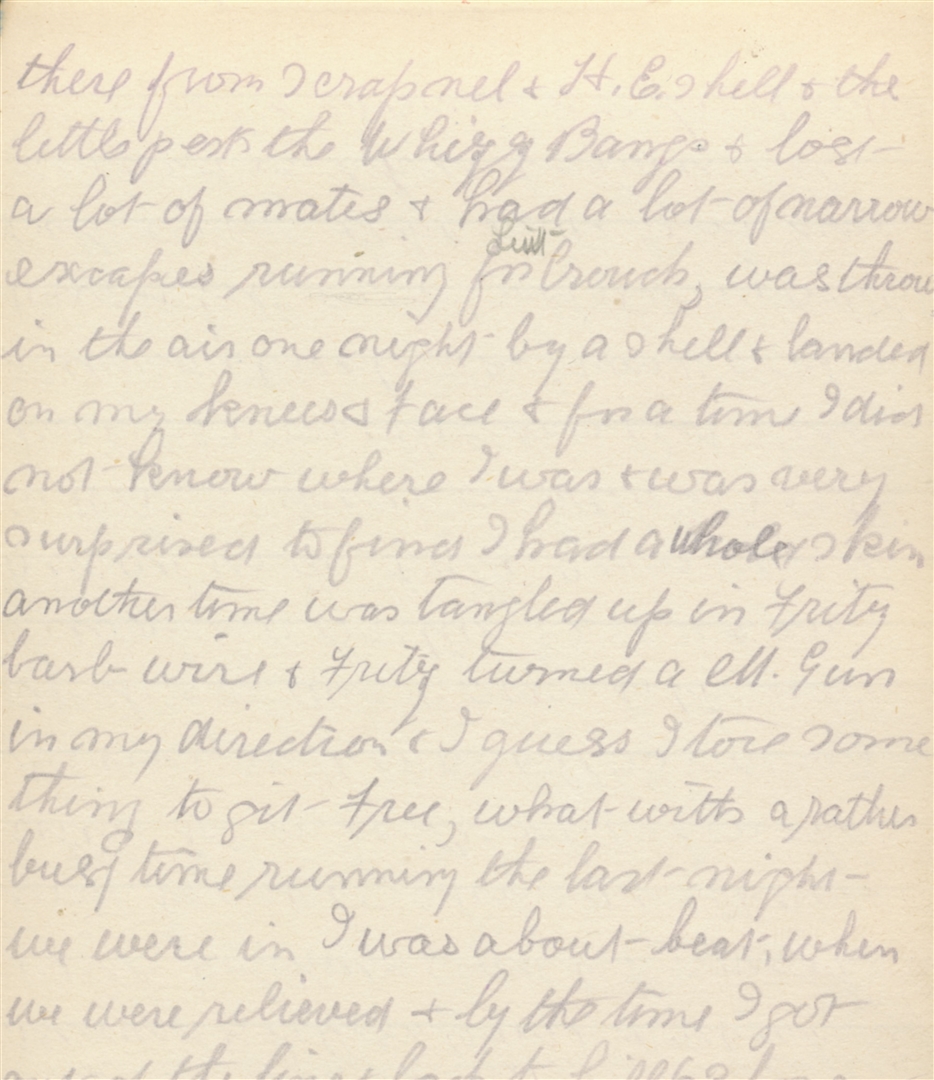 there from Scrapnel & H.E. shell & the
little pests the Whizz Bangs & lost
a lot of mates & had a lot of narrow
excapes running for Lieut Crouch, was throw
in the air one night by a shell & landed
on my knees & face & for a time I did
not know where I was & was very
surprised to find I had a whole skin
another time was tangled up in Fritz
barb wire & Fritz turned a M. Gun
in my direction & I guess I tore some
thing to git free, what with a rather
busy time running the last night
we were in I was about beat, when
we were relieved & by the time I got
of the lines back to